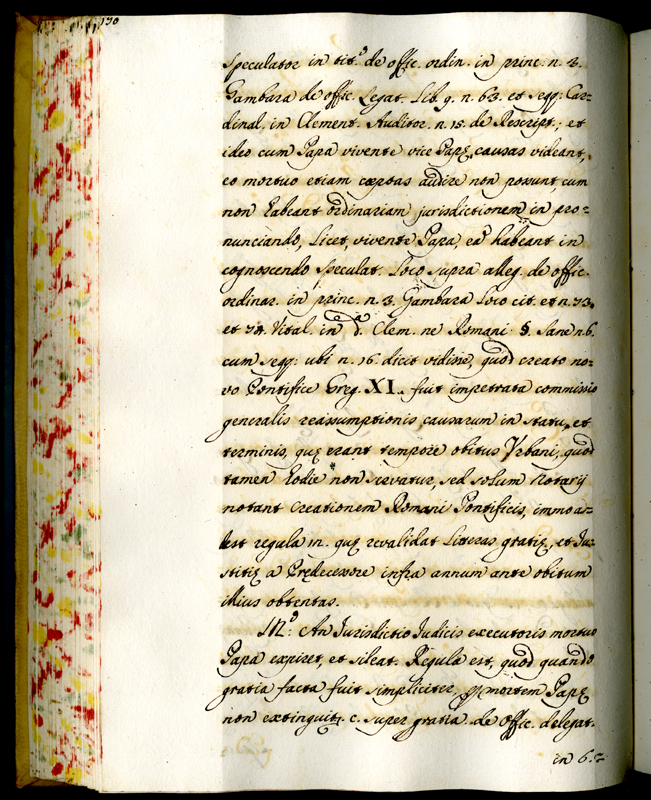 130
Speculator in tit.º de offic. ordin. in princ. n. 3.
Gambara de offic. Legat. Lib. 9. n. 63. et seqq: Car=
dinal. in Clement. Auditor. n. 15. de Rescript.; et
ideo cum Papa vivente vice Papę causas videant,
eo mortuo etiam cœptas audire non possunt, cum
non habeant ordinariam jurisdictionem in pro=
nunciando, Licet, vivente Papa, eã habeant in
cognoscendo Speculat. Loco supra alleg. de offic.
ordinar. in princ. n. 3. Gambara Loco cit. et n. 73.
et 74. Vital. in d. Clem. ne Romani §. Sane n. 6.
cum seqq: ubi n. 16. dicit vidisse, quod creato no=
vo Pontifice Greg. XI. fuit impetrata commissio
generalis reassumptionis causarum in statu, et
terminis, quę erant tempore obitus Vrbani, quod
tamen hodie non servatur, sed solum Notarij
notant creationem Romani Pontificis, immo ad=
est regula in. quę revalidat Litteras gratię, et Ju=
stitię a Prędecessore infra annum ante obitum
illius obtentas.
An Jurisdictio Judicis executoris mortuo
Papa expiret, et sileat. Regula est, quod quando
gratia facta fuit simpliciter, p mortem Papę
non extinguitr. c. super gratia. de offic. delegat.
in 6.º